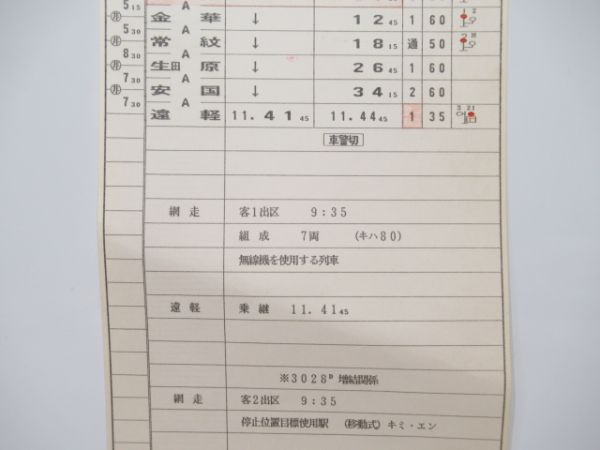 5 15
A
㊊ 金華 ↓ 12 45 1 60 2
5 30
A
㊊ 常紋 ↓ 18 15 通 50
8 30
A
㊊ 生田原 ↓ 26 45 1 60
7 30
A
㊊ 安国 ↓ 34 15 2 60
7 30
A
遠軽 11.41 45 11.44 45 1 35 3 21
車警切
網走 客1出区 9:35
組成 7両 (キハ80)
無線機を使用する列車
遠軽 乗継 11.41 45
※3028D 増結関係
網走 客2出区 9:35
停止位置目標使用駅 (移動式) キミ・エン